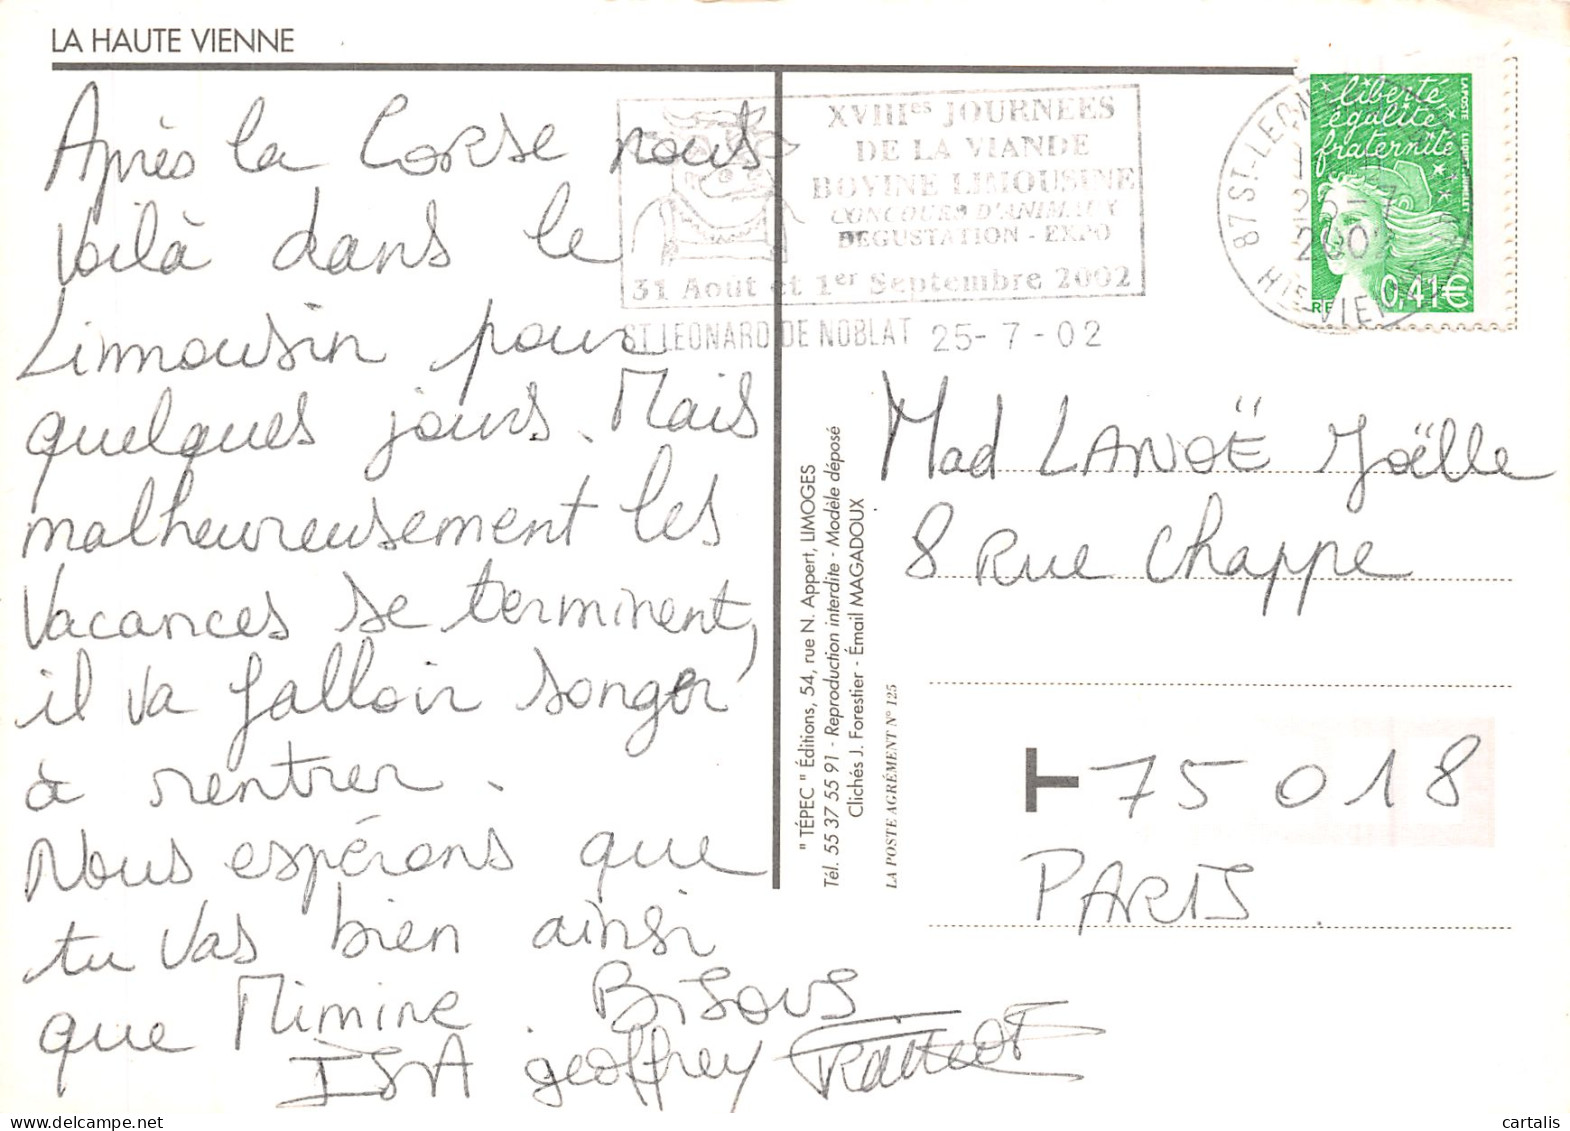 LA HAUTE VIENNE
Après la Corse nous
voilà dans le
Limousin pour
quelques jours. Mais
malheureusement les
vacances se terminent,
il va falloir songer
à rentrer.
Nous espérons que
tu vas bien ainsi
que Mimine. Bisous
ISA geoffrey
XVIIIes JOURNEES
DE LA VIANDE
BOVINE LIMOUSINE
CONCOURS D'ANIMAUX
DEGUSTATION - EXPO
31 Août et 1er Septembre 2002
ST LEONARD DE NOBLAT 25-7-02
87 ST-LEON
25-7
200
HTE-VIENNE
liberté
égalité
fraternité
LA POSTE
RF
0,41€
" TÉPEC " Éditions, 54, rue N. Appert, LIMOGES
Tél. 55 37 55 91 - Reproduction interdite - Modèle déposé
Clichés J. Forestier - Émail MAGADOUX
LA POSTE AGRÉMENT N° 125
Mad LANOË Joëlle
8 Rue Chappe
T 75018
PARIS.
cartalis